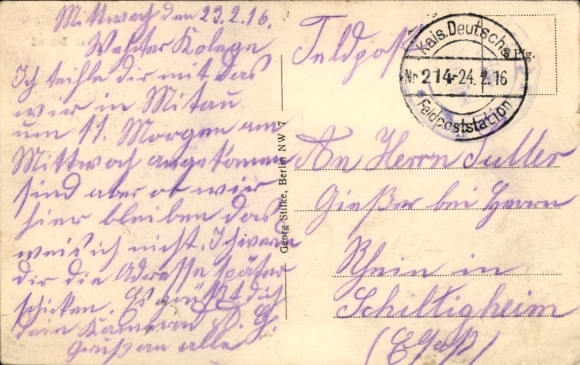 Mittwoch den 23.2.16.
Wehrter Kolege
Ich teihle dir mit das
wir in Mitau
um 11. Morgen am
Mittwoch angekomen
sind aber ob wir
hier bleiben das
weis ich nicht. Ich
dir die Adresse später
schicken. Es grüßt dich
dein Kamerad
Gruß an alle
Georg Stilke, Berlin NW 7
Feldpost
Kais. Deutsche
Nr 214-24.2.16
Feldpoststation
An Herrn Suller
Gießer bei Herrn
Rhein in
Schiltigheim
(Elsaß)